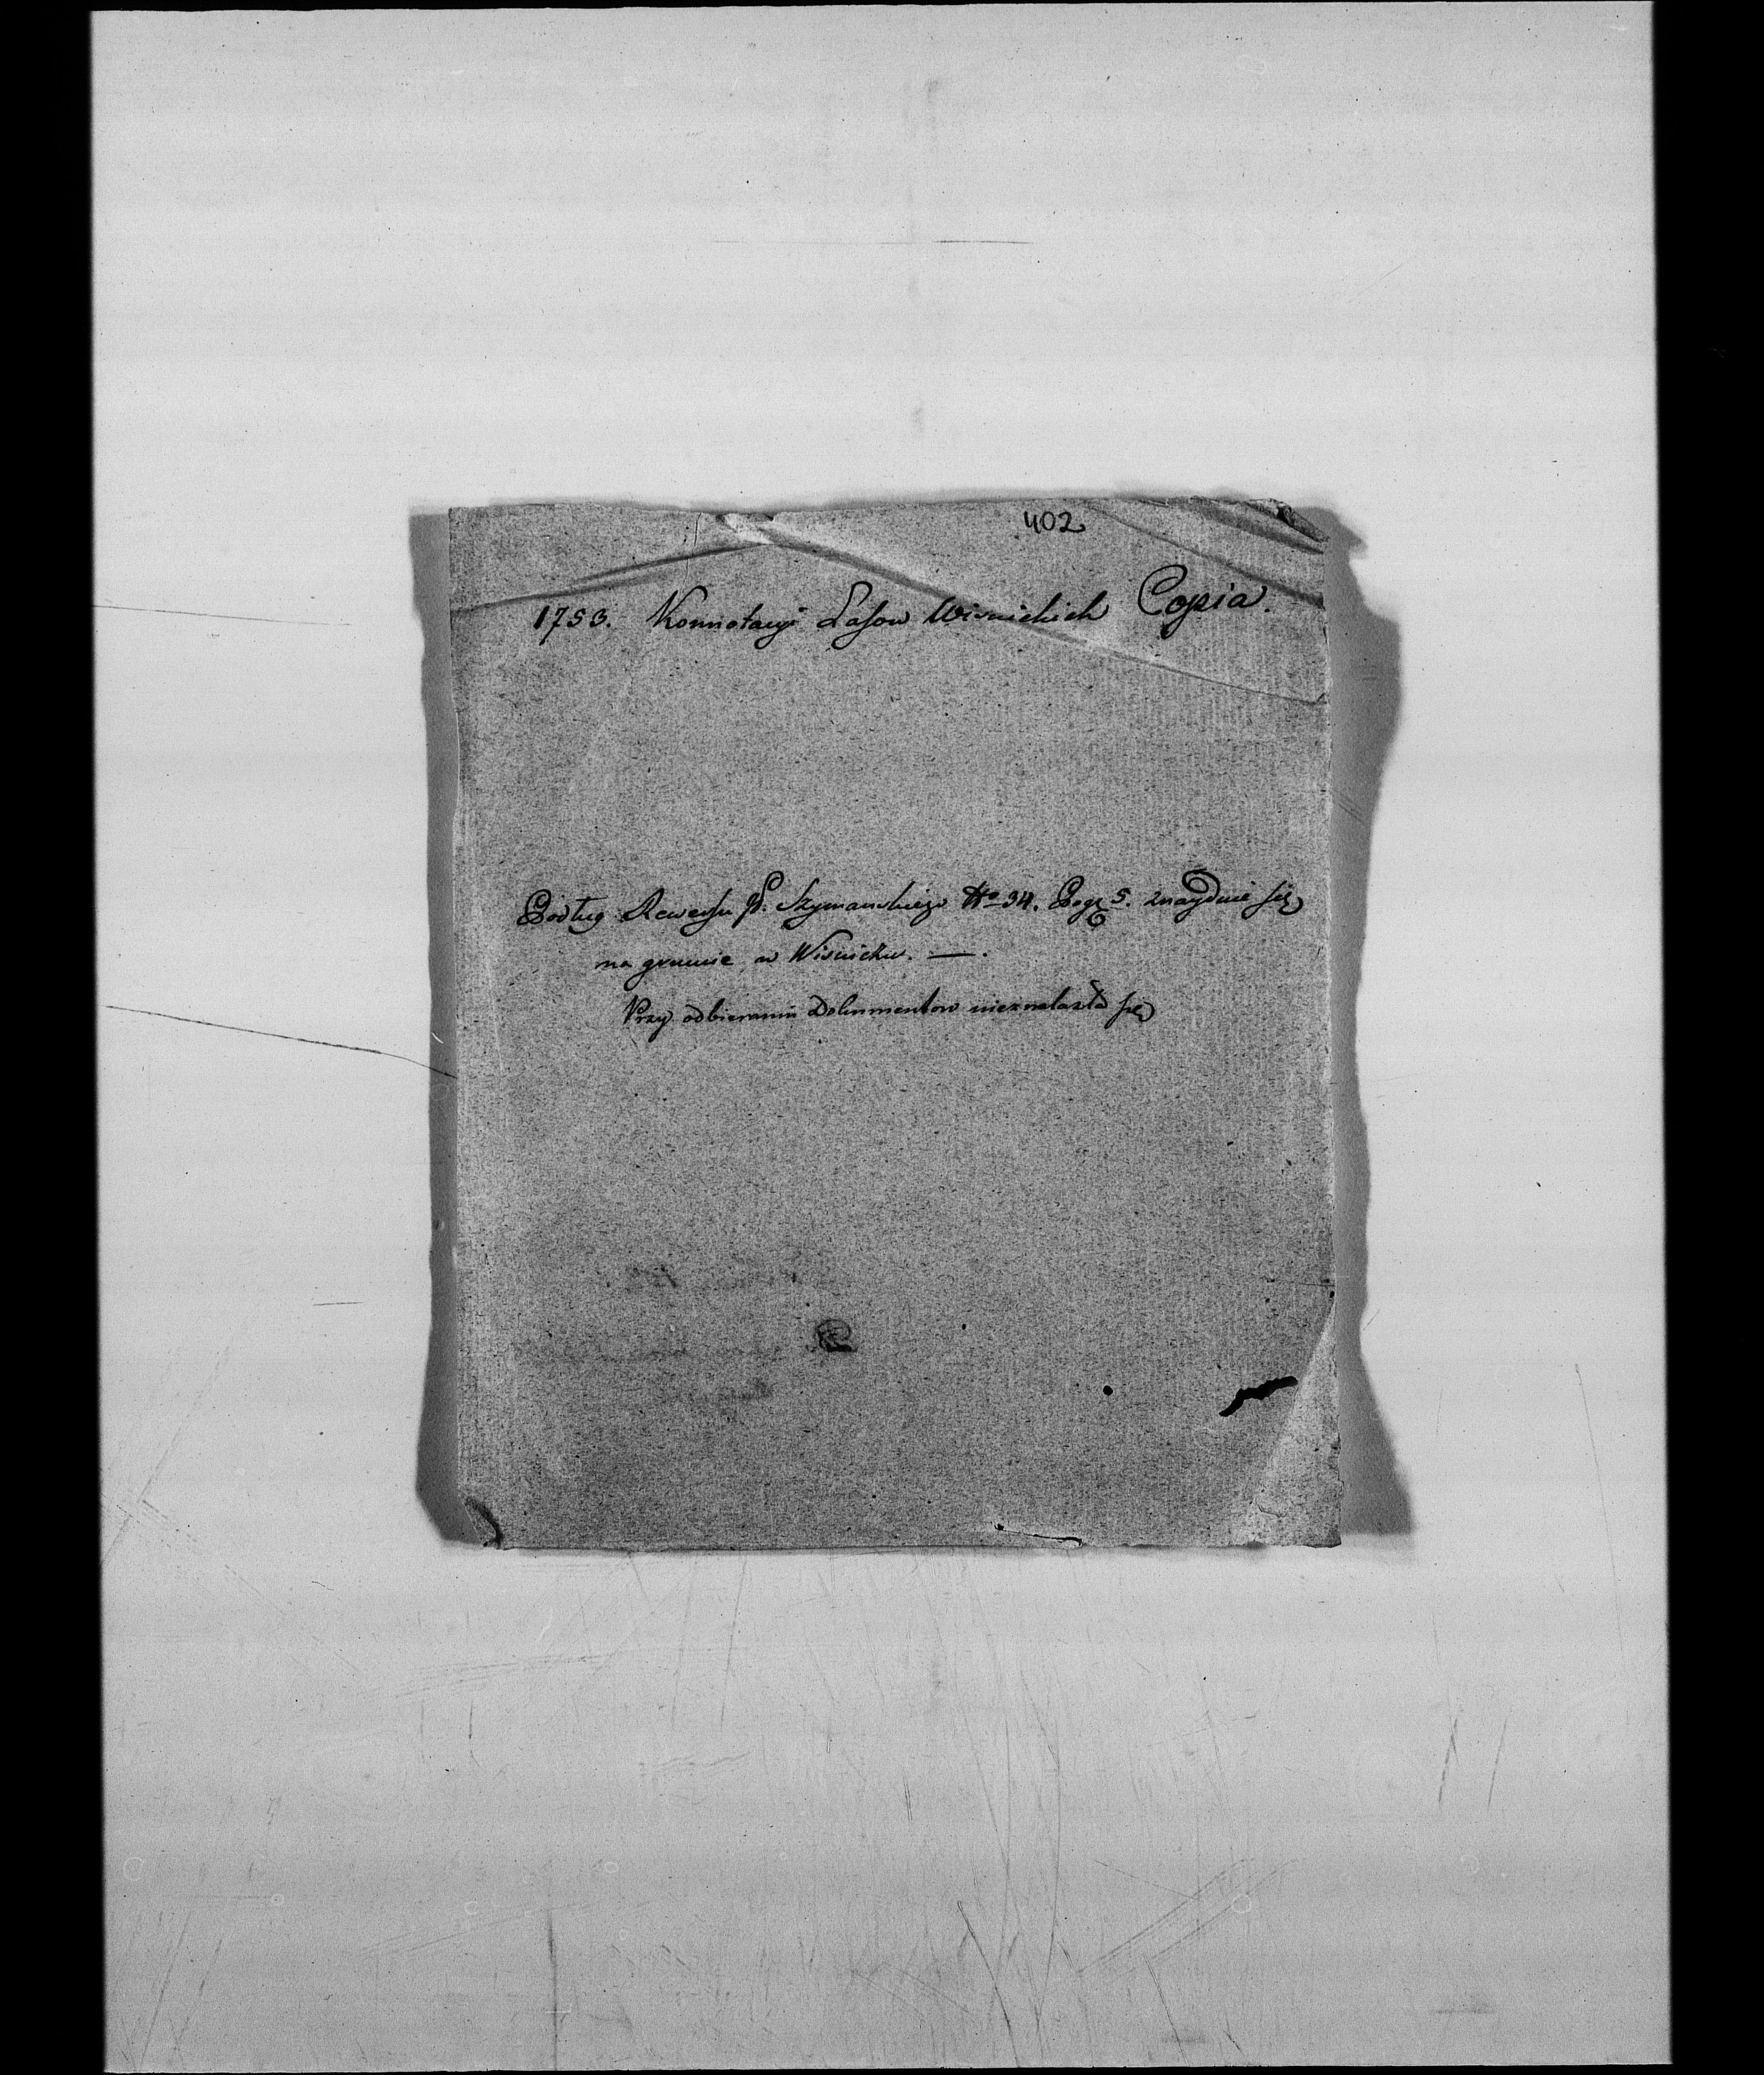 402
1753. Konnotacyi Lasow Wisnickich Copia.
Podług Rewersu P. Szymanskiego No 34. Pag 5. znayduie się
na gruncie w Wisniczu. —.
Przy odbieraniu Dokumentow nieznalazła się